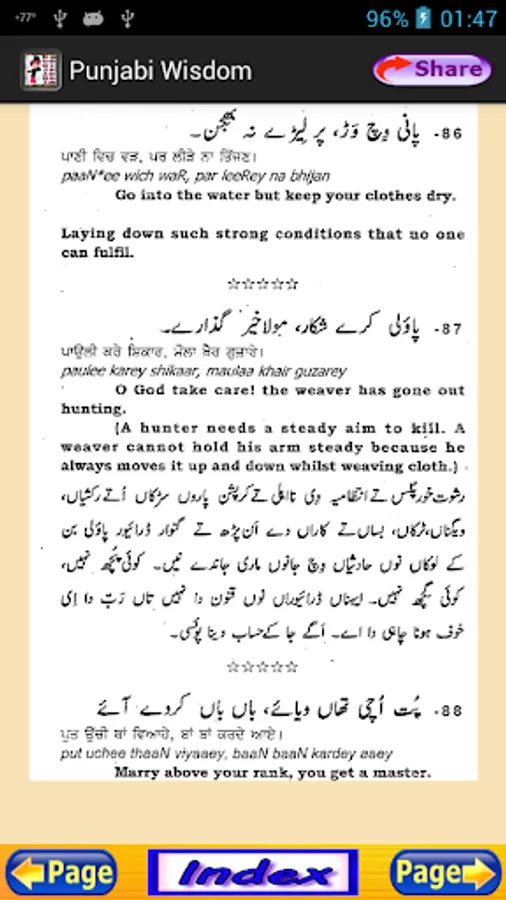 +77°
96% 01:47
Punjabi Wisdom
Share
86- پانی وِچ وَڑ، پر لِیڑے نہ بھِجّن۔
ਪਾਣੀ ਵਿਚ ਵੜ, ਪਰ ਲੀੜੇ ਨਾ ਭਿੱਜਣ।
paaN*ee wich waR, par leeRey na bhijan
Go into the water but keep your clothes dry.
Laying down such strong conditions that no one
can fulfil.
☆☆☆☆☆
87- پاؤلی کرے شکار، مولا خیر گذارے۔
ਪਾਉਲੀ ਕਰੇ ਸ਼ਿਕਾਰ, ਮੌਲਾ ਖ਼ੈਰ ਗੁਜ਼ਾਰੇ।
paulee karey shikaar, maulaa khair guzarey
O God take care! the weaver has gone out
hunting.
(A hunter needs a steady aim to kill. A
weaver cannot hold his arm steady because he
always moves it up and down whilst weaving cloth.)
رشوت خور پُلس تے انتظامیہ دِی نااہلی تے کرپشن پاروں سڑکاں اُتے رکشیاں،
ویگناں، ٹرکاں، بساں تے کاراں دے اَن پڑھ تے گنوار ڈرائیور پاؤلی بن
کے لوکاں نوں حادثیاں وِچ جانوں ماری جاندے نیں۔ کوئی پُچھ نہیں،
کوئی گِچھ نہیں۔ ایہناں ڈرائیوراں نوں قنون دا نہیں تاں رَبّ دا اِی
خوف ہونا چاہی دا اے۔ اَگے جا کے حساب دینا پَوسی۔
☆☆☆☆☆
88- پُت اُچی تھاں ویائے، باں باں کردے آئے
ਪੁਤ ਉੱਚੀ ਥਾਂ ਵਿਆਹੇ, ਬਾਂ ਬਾਂ ਕਰਦੇ ਆਏ।
put uchee thaaN viyaaey, baaN baaN kardey aaey
Marry above your rank, you get a master.
Page Index Page